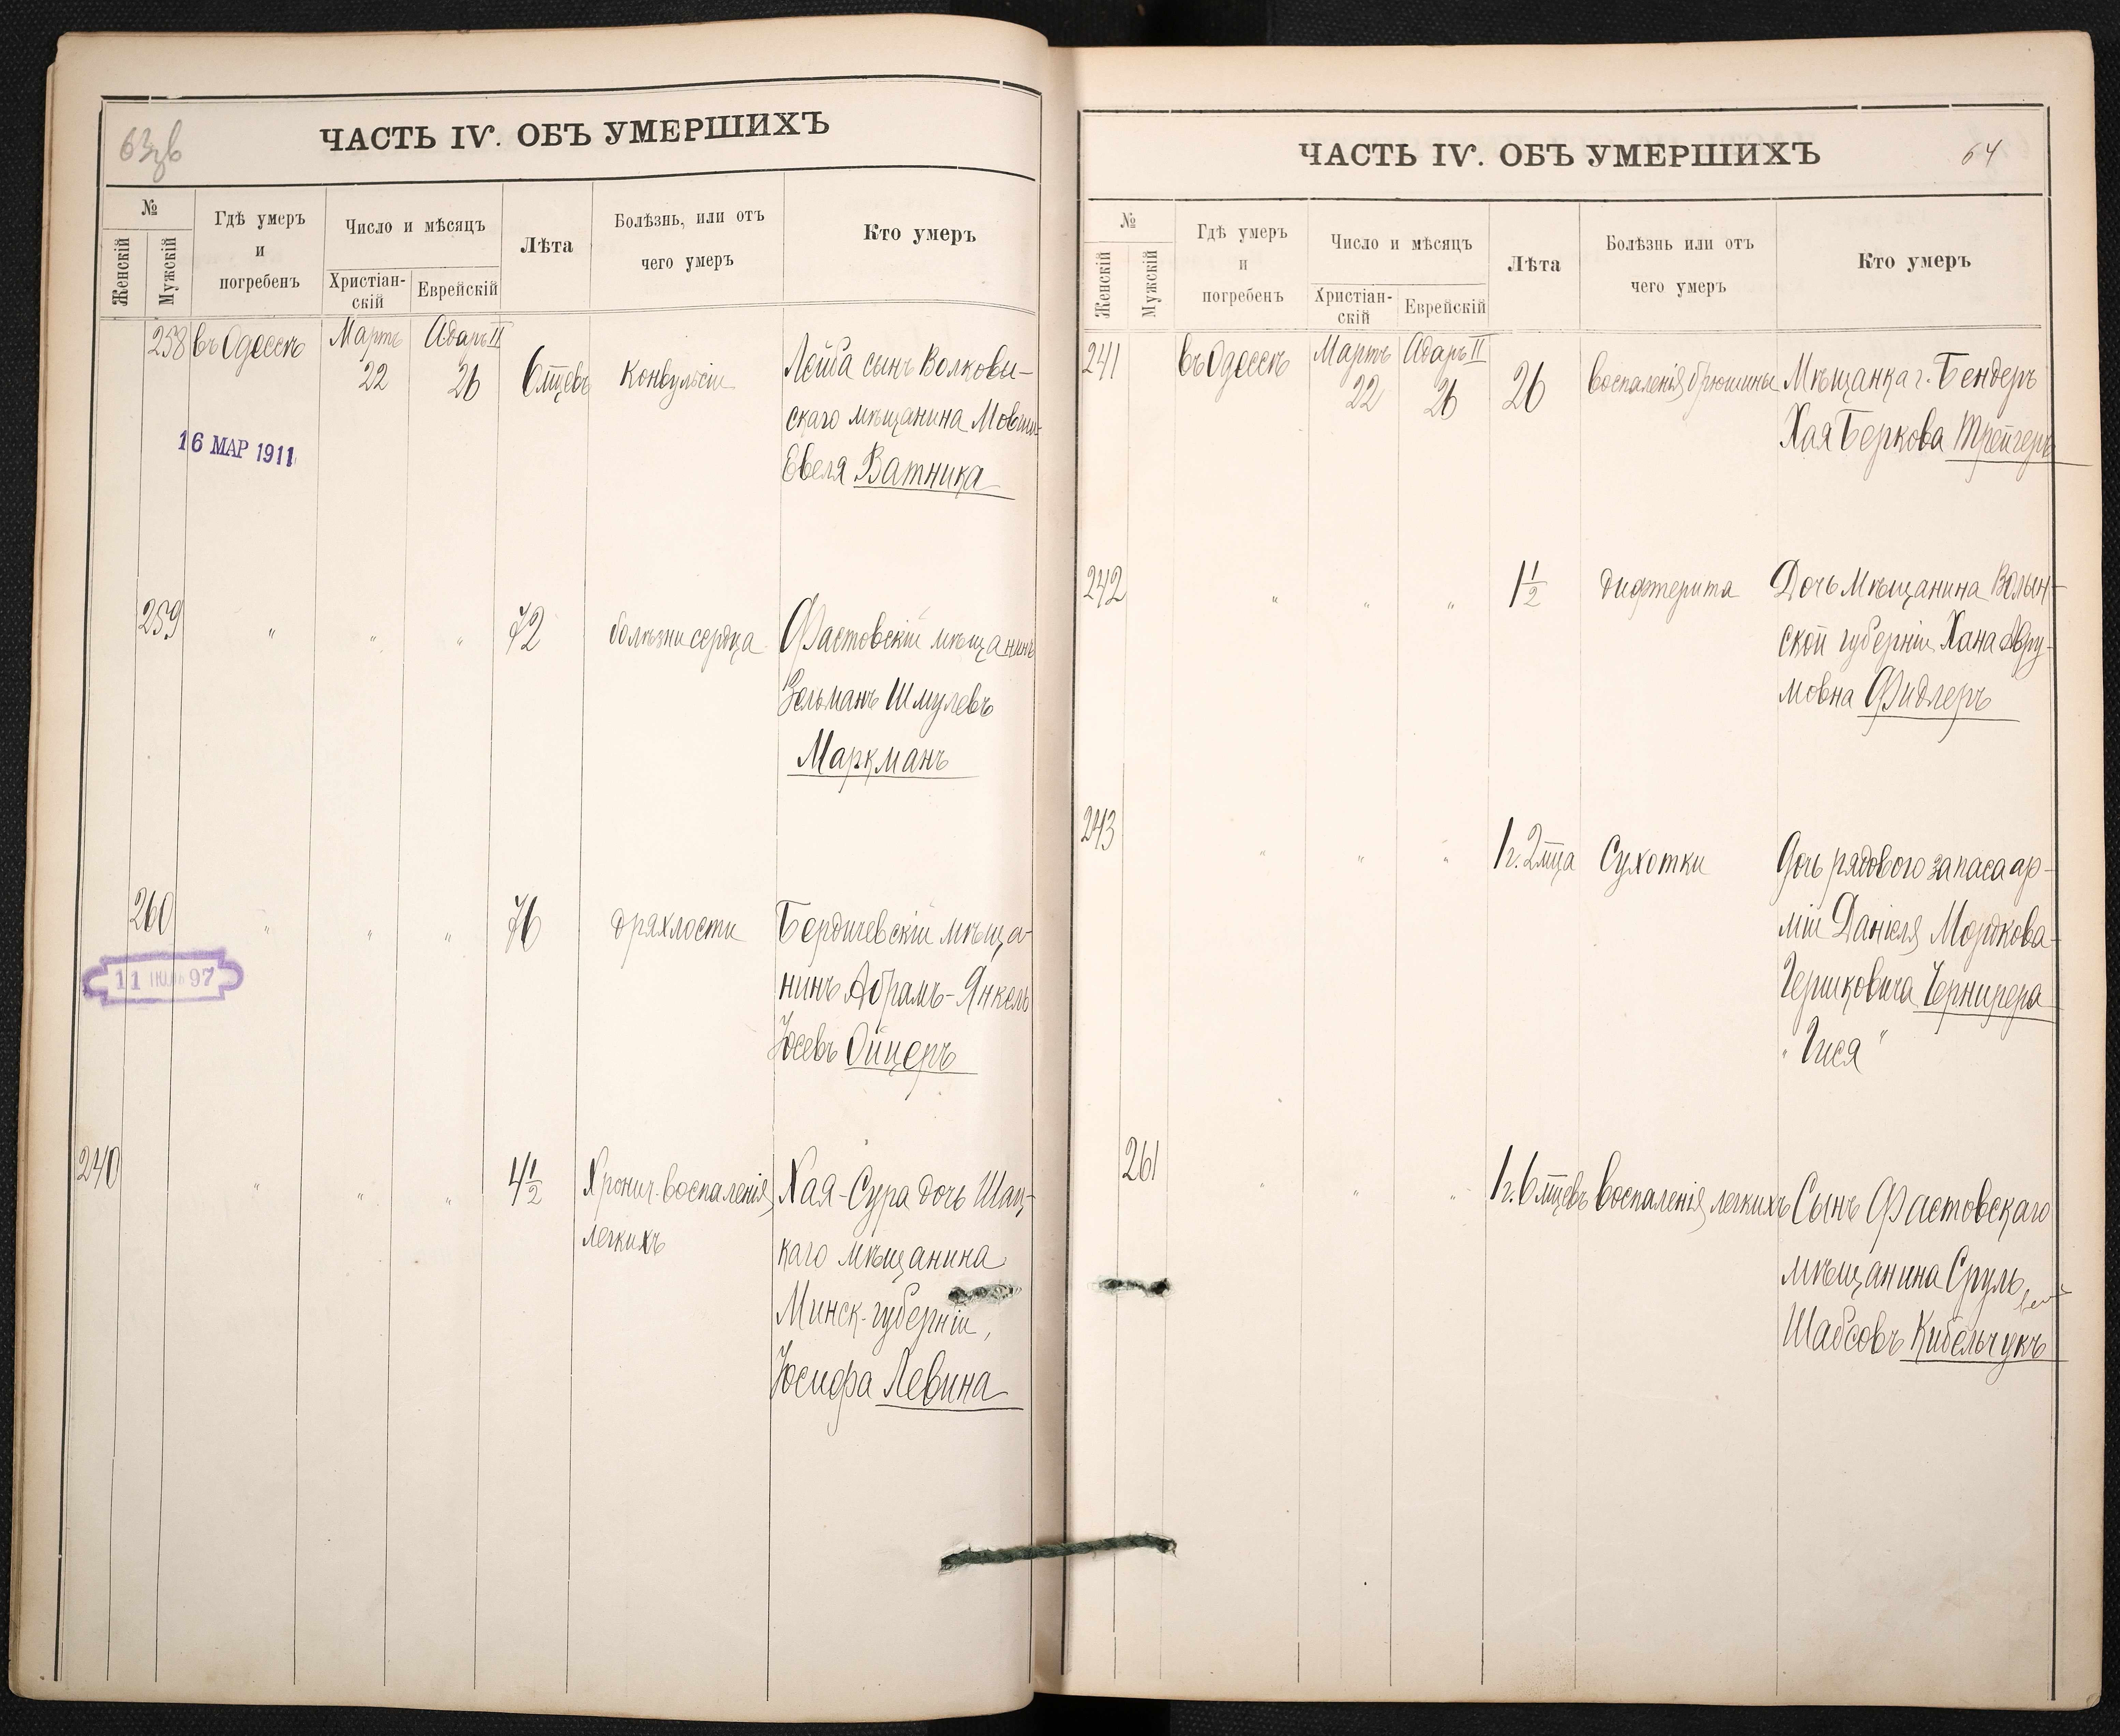 63зв
ЧАСТЬ IV. ОБЪ УМЕРШИХЪ
№
Женскій
Мужскій
Гдѣ умеръ
и
погребенъ
Число и мѣсяцъ
Христіан-
скій
Еврейскій
Лѣта
Болѣзнь, или отъ
чего умеръ
Кто умеръ
258 въ Одессѣ Мартъ Адаръ II
22 26 6 мцевъ Конвульсіи Лейба сынъ Волкови-
скаго мѣщанина Мовши-
Евеля Ватника
16 МАР 1911
259 " " " 72 болѣзни сердца Фастовскій мѣщанинъ
Зельманъ Шмулевъ
Маркманъ
260 " " " 76 дряхлости Бердичевскій мѣща-
нинъ Абрамъ-Янкель
Іосевъ Ойцеръ
11 97
240 " " " 4 1/2 Хронич. воспаленія Хая-Сура дочь Шац-
легкихъ каго мѣщанина
Минск. губерніи,
Іосифа Левина
ЧАСТЬ IV. ОБЪ УМЕРШИХЪ
64
№
Женскій
Мужскій
Гдѣ умеръ
и
погребенъ
Число и мѣсяцъ
Христіан-
скій
Еврейскій
Лѣта
Болѣзнь или отъ
чего умеръ
Кто умеръ
241 въ Одессѣ Мартъ Адаръ II
22 26 26 воспаленія брюшины Мѣщанка г. Бендеръ
Хая Беркова Трейгеръ
242 " " " 1 1/2 дифтерита Дочь мѣщанина Волын-
ской губерніи Хана Авру-
мовна Фидлеръ
243 " " " 1 г. 2 мца Сухотки Дочь рядового запаса ар-
міи Даніеля Мордкова-
Гершковича
"Гися"
261 " " " 1 г. 6 мцевъ воспаленія легкихъ Сынъ Фастовскаго
мѣщанина Сруль
Шабсовъ Кибельчукъ